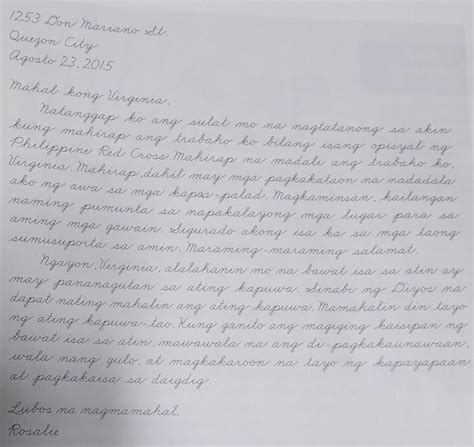 1253 Don Mariano St.
Quezon City
Agosto 23, 2015
Mahal kong Virginia,
Natanggap ko ang sulat mo na nagtatanong sa akin
kung mahirap ang trabaho ko bilang isang opisyal ng
Philippine Red Cross. Mahirap na madali ang trabaho ko,
Virginia. Mahirap, dahil may mga pagkakataon na nadadala
ako ng awa sa mga kapos-palad. Magkaminsan, kailangan
naming pumunta sa napakalayong mga lugar para sa
aming mga gawain. Sigurado akong isa ka sa mga taong
sumusuporta sa amin. Maraming-maraming salamat.
Ngayon, Virginia, alalahanin mo na bawat isa sa atin ay
may pananagutan sa ating kapuwa. Sinabi ng Diyos na
dapat nating mahalin ang ating kapuwa. Mamahalin din tayo
ng ating kapuwa-tao. Kung ganito ang magiging kaisipan ng
bawat isa sa atin, mawawala na ang di-pagkakaunawaan,
wala nang gulo, at magkakaroon na tayo ng kapayapaan
at pagkakaisa sa daigdig.
Lubos na nagmamahal,
Rosalie